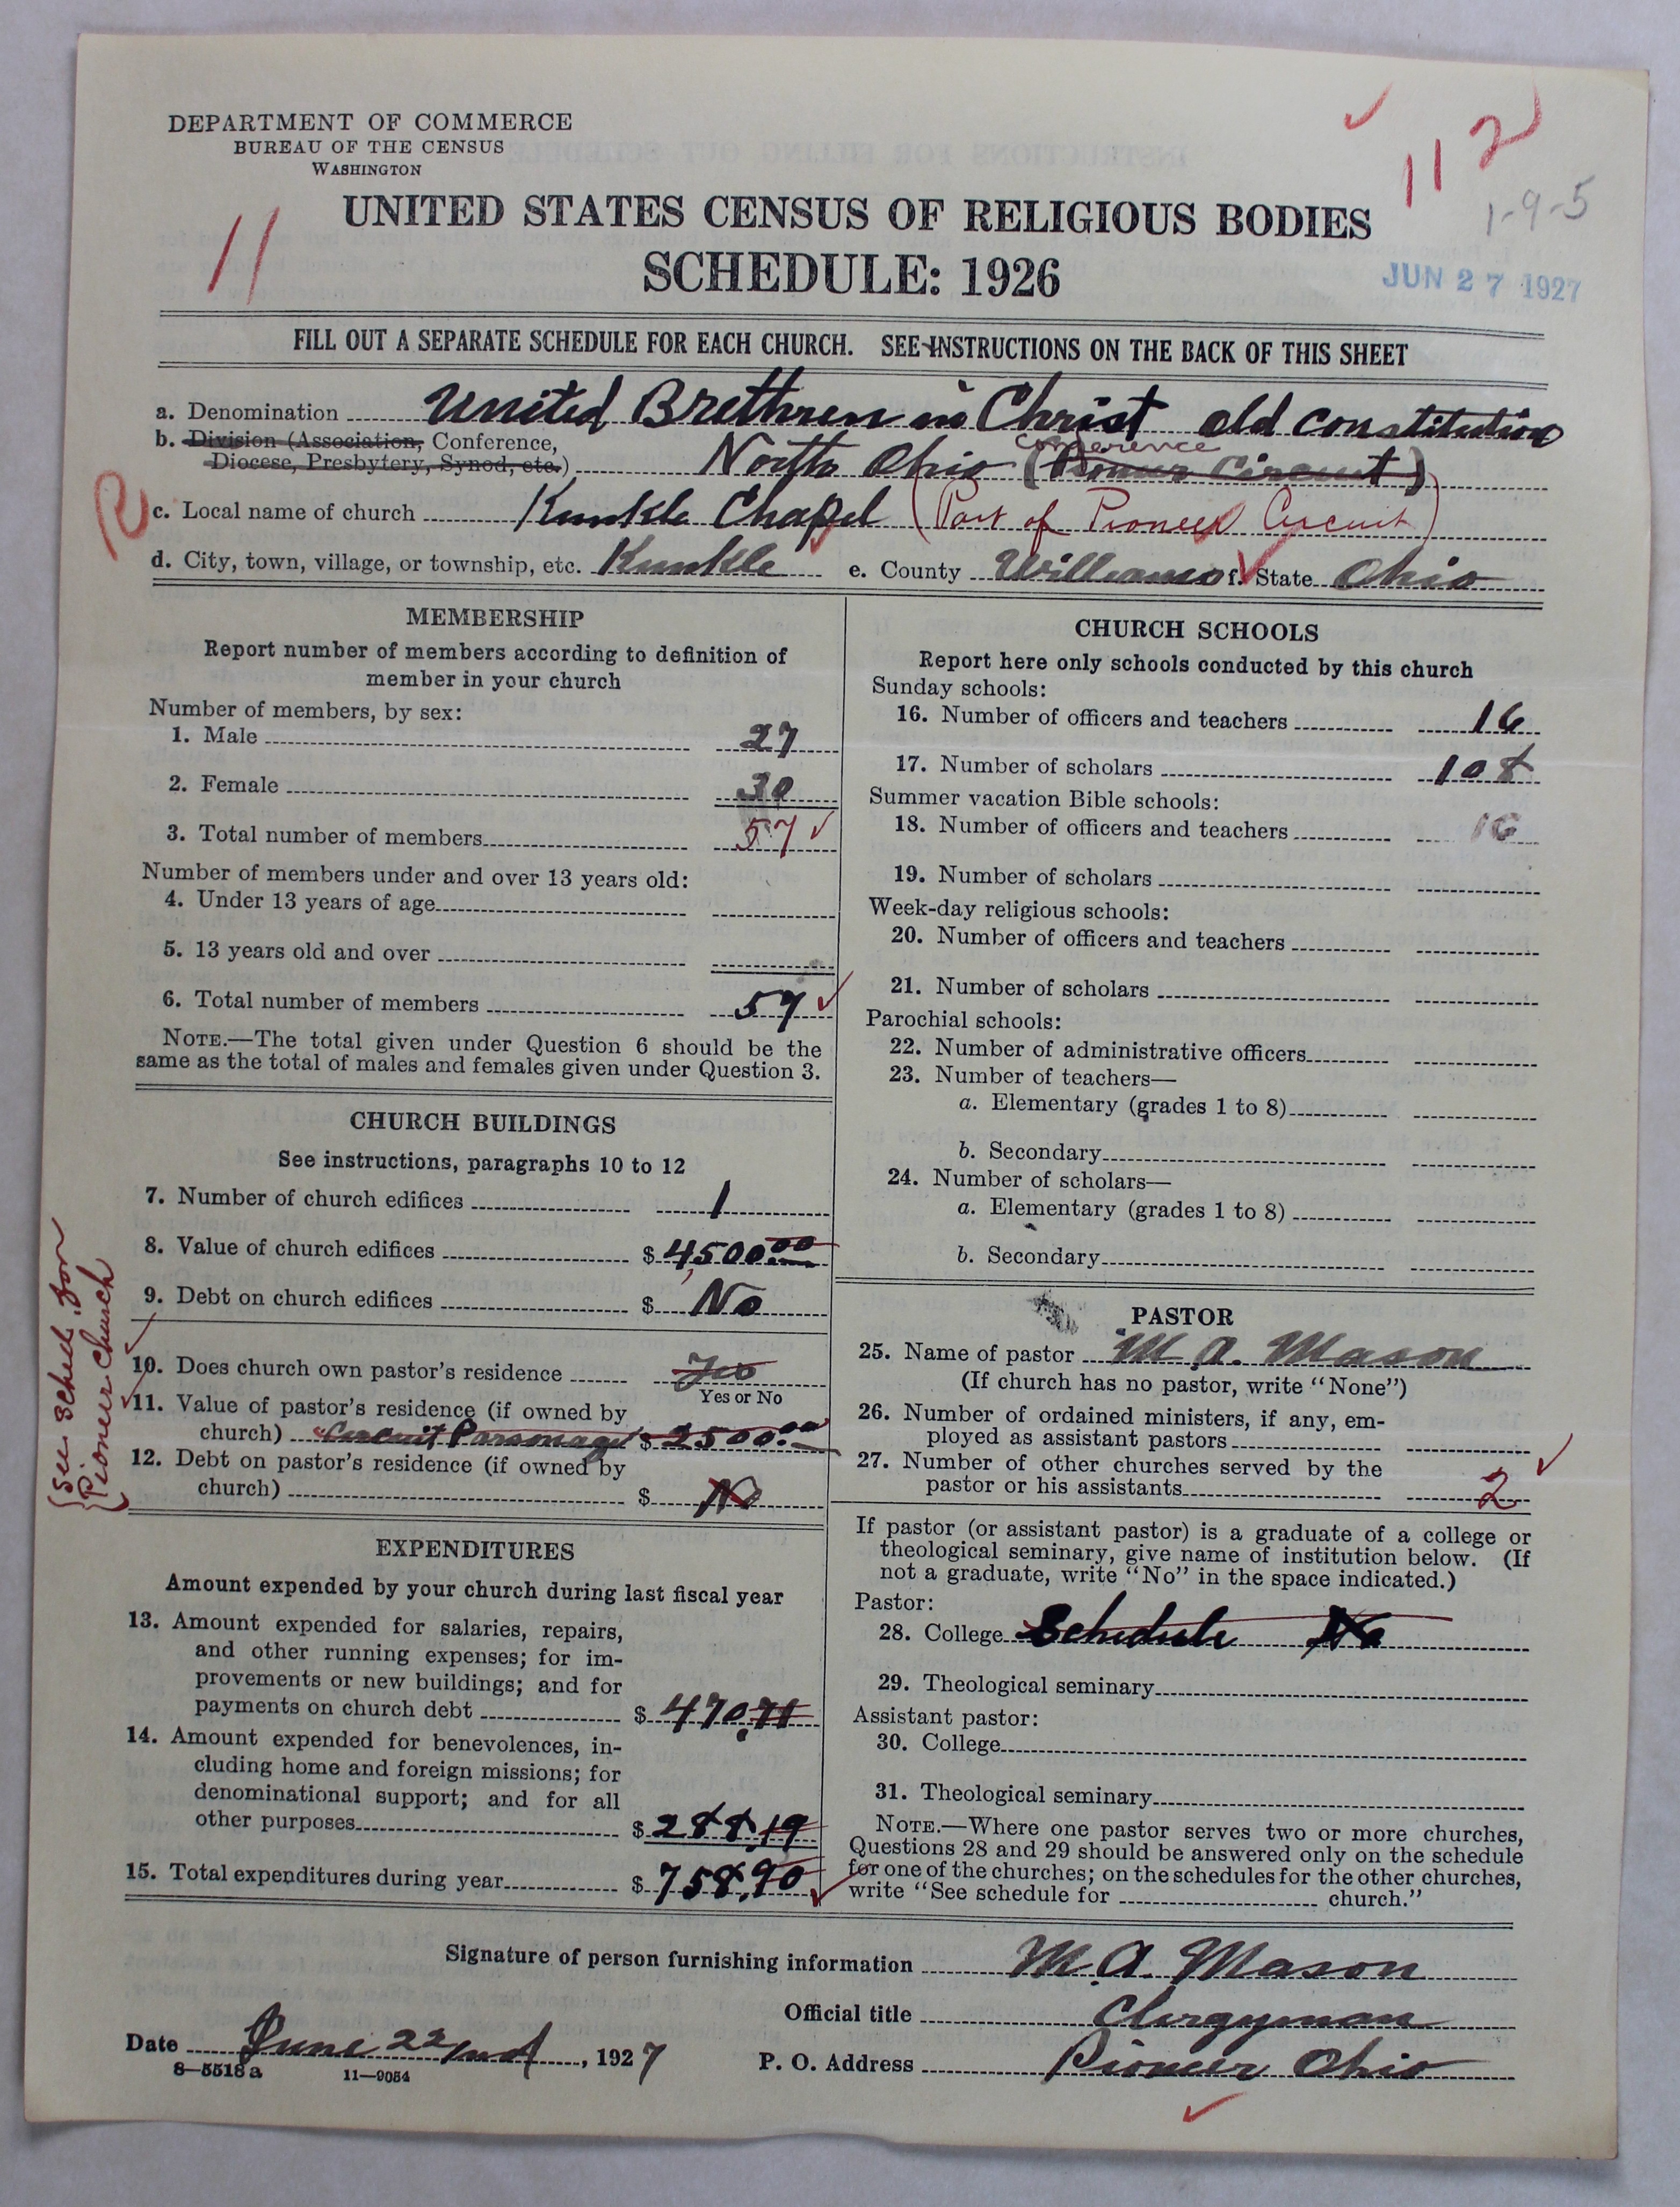 DEPARTMENT OF COMMERCE
BUREAU OF THE CENSUS
WASHINGTON
112
1-9-5
11
UNITED STATES CENSUS OF RELIGIOUS BODIES
SCHEDULE: 1926
JUN 27 1927
FILL OUT A SEPARATE SCHEDULE FOR EACH CHURCH. SEE INSTRUCTIONS ON THE BACK OF THIS SHEET
a. Denomination United Brethren in Christ old constitution
b. Division (Association, Conference,
Diocese, Presbytery, Synod, etc.) North Ohio Conference (Pioneer Circuit)
R
c. Local name of church Kunkle Chapel (Part of Pioneer Circuit)
d. City, town, village, or township, etc. Kunkle e. County Williams f. State Ohio
MEMBERSHIP
Report number of members according to definition of
member in your church
Number of members, by sex:
1. Male 27
2. Female 30
3. Total number of members 57
Number of members under and over 13 years old:
4. Under 13 years of age
5. 13 years old and over
6. Total number of members 57
NOTE.—The total given under Question 6 should be the
same as the total of males and females given under Question 3.
CHURCH BUILDINGS
See instructions, paragraphs 10 to 12
7. Number of church edifices 1
8. Value of church edifices $ 4,500.00
9. Debt on church edifices $ No
See Sched. for
Pioneer Church
10. Does church own pastor's residence Yes
Yes or No
11. Value of pastor's residence (if owned by
church) Circuit Parsonage $ 2500.00
12. Debt on pastor's residence (if owned by
church) $ No
EXPENDITURES
Amount expended by your church during last fiscal year
13. Amount expended for salaries, repairs,
and other running expenses; for im-
provements or new buildings; and for
payments on church debt $ 470.71
14. Amount expended for benevolences, in-
cluding home and foreign missions; for
denominational support; and for all
other purposes $ 288.19
15. Total expenditures during year $ 758.90
CHURCH SCHOOLS
Report here only schools conducted by this church
Sunday schools:
16. Number of officers and teachers 16
17. Number of scholars 108
Summer vacation Bible schools:
18. Number of officers and teachers 16
19. Number of scholars
Week-day religious schools:
20. Number of officers and teachers
21. Number of scholars
Parochial schools:
22. Number of administrative officers
23. Number of teachers—
a. Elementary (grades 1 to 8)
b. Secondary
24. Number of scholars—
a. Elementary (grades 1 to 8)
b. Secondary
PASTOR
25. Name of pastor M. A. Mason
(If church has no pastor, write "None")
26. Number of ordained ministers, if any, em-
ployed as assistant pastors
27. Number of other churches served by the
pastor or his assistants 2
If pastor (or assistant pastor) is a graduate of a college or
theological seminary, give name of institution below. (If
not a graduate, write "No" in the space indicated.)
Pastor:
28. College Schedule No
29. Theological seminary
Assistant pastor:
30. College
31. Theological seminary
NOTE.—Where one pastor serves two or more churches,
Questions 28 and 29 should be answered only on the schedule
for one of the churches; on the schedules for the other churches,
write "See schedule for church."
Signature of person furnishing information M. A. Mason
Official title Clergyman
Date June 22nd, 1927 P. O. Address Pioneer Ohio
8—5518a 11—9054